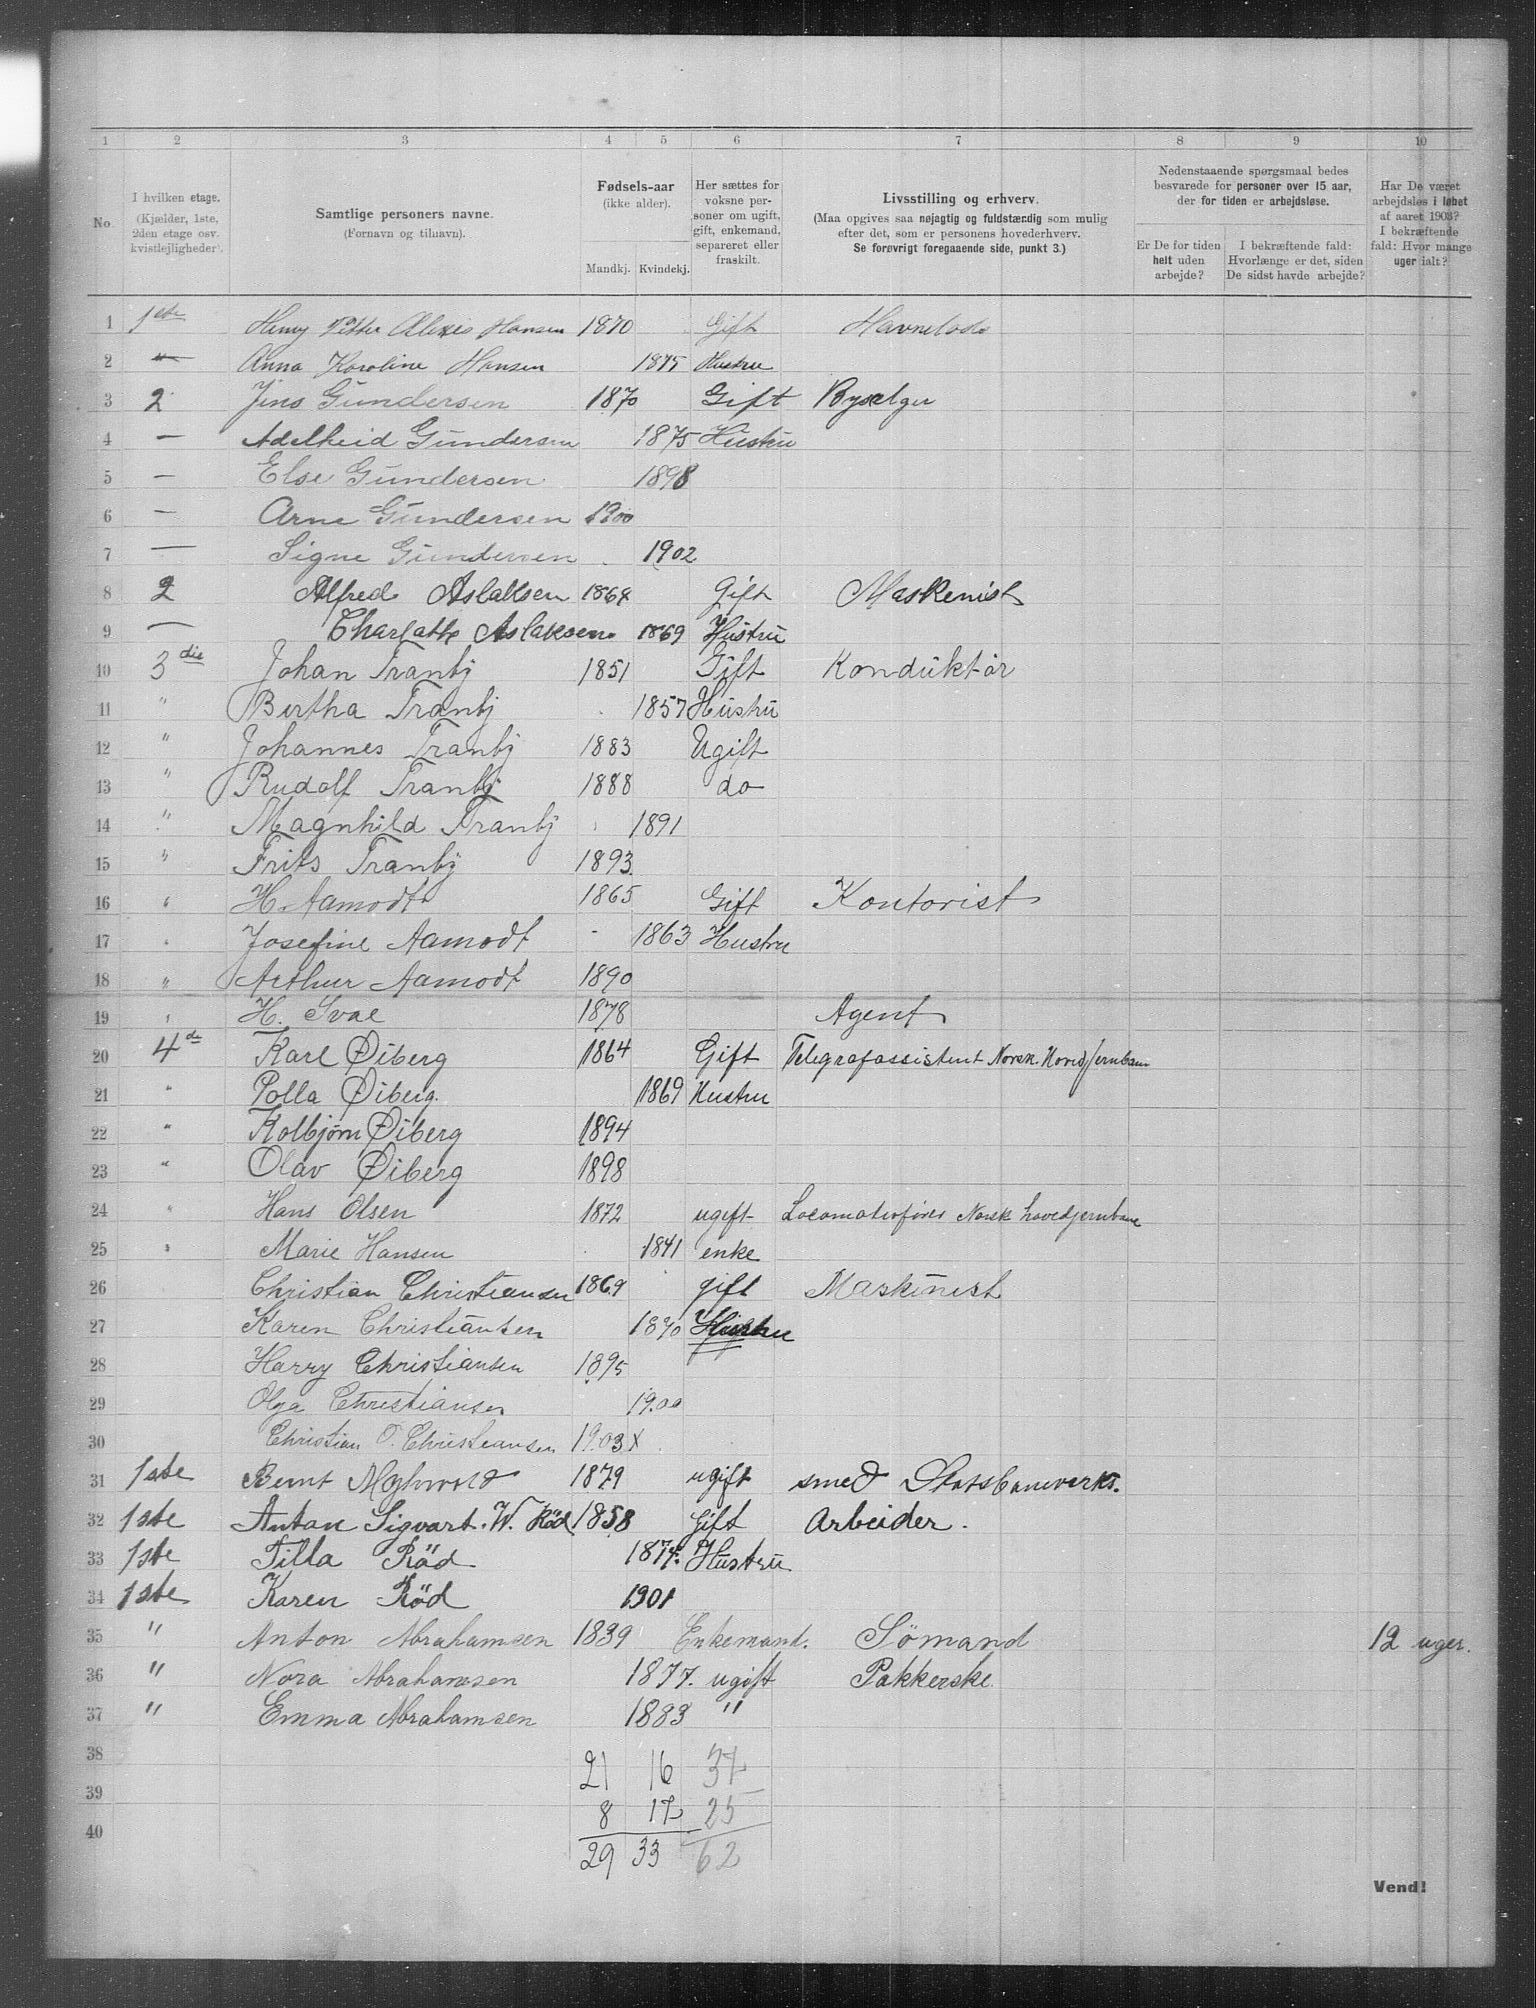 1 2 3 4 5 6 7 8 9 10
No.
I hvilken etage. (Kjælder, 1ste, 2den etage osv. kvistlejligheder).
Samtlige personers navne. (Fornavn og tilnavn).
Fødsels-aar (ikke alder).
Mandkj. Kvindekj.
Her sættes for voksne personer om ugift, gift, enkemand, separeret eller fraskilt.
Livsstilling og erhverv.
(Maa opgives saa nøjagtig og fuldstændig som mulig efter det, som er personens hovederhverv.
Se forøvrigt foregaaende side, punkt 3.)
Nedenstaaende spørgsmaal bedes besvarede for personer over 15 aar, der for tiden er arbejdsløse.
Er De for tiden helt uden arbejde?
I bekræftende fald: Hvorlænge er det, siden De sidst havde arbejde?
Har De været arbejdsløs i løbet af aaret 1903? I bekræftende fald: Hvor mange uger ialt?
1 1ste Henry Petter Alexis Hansen 1870 Gift Havnelods
2 " Anna Karoline Hansen 1875 Hustru
3 2 Jens Gundersen 1870 Gift Bysælger
4 — Adelheid Gundersen 1875 Hustru
5 — Else Gundersen 1898
6 — Arne Gundersen 1900
7 — Signe Gundersen 1902
8 2 Alfred Aslaksen 1864 Gift Maskenist
9 — Charlatte Aslaksen 1869 Hustru
10 3die Johan Tranby 1851 Gift Konduktør
11 " Bertha Tranby 1857 Hustru
12 " Johannes Tranby 1883 Ugift
13 " Rudolf Tranby 1888 do
14 " Magnhild Tranby 1891
15 " Frits Tranby 1893
16 " H Aamodt 1865 Gift Kontorist
17 " Josefine Aamodt 1863 Hustru
18 " Arthur Aamodt 1890
19 " H. Svae 1878 Agent
20 4de Karl Øiberg 1864 Gift Telegrafassistent Norsk. Hovedjernbane
21 " Polla Øiberg 1869 Hustru
22 " Kolbjørn Øiberg 1894
23 " Olav Øiberg 1898
24 " Hans Olsen 1872 ugift Locomotivfører Norsk hovedjernbane
25 " Marie Hansen 1841 enke
26 Christian Christiansen 1869 gift Maskinist
27 Karen Christiansen 1870 Hustru
28 Harry Christiansen 1895
29 Olga Christiansen 1900
30 Christian O. Christiansen 1903 X
31 1ste Bernt 1879 ugift smed Statsbaneverks.
32 1ste Antan Sigvart. W. Röd 1858 Gift Arbeider.
33 1ste Tilla Röd 1874. Hustru
34 1ste Karen Röd 1901
35 " Anton Abrahamsen 1839 Enkemand. Sömand 12 uger.
36 " Nora Abrahamsen 1877. ugift Pakkerske
37 " Emma Abrahamsen 1883 "
38 21 16 37
39 8 17 25
40 29 33 62
Vend!